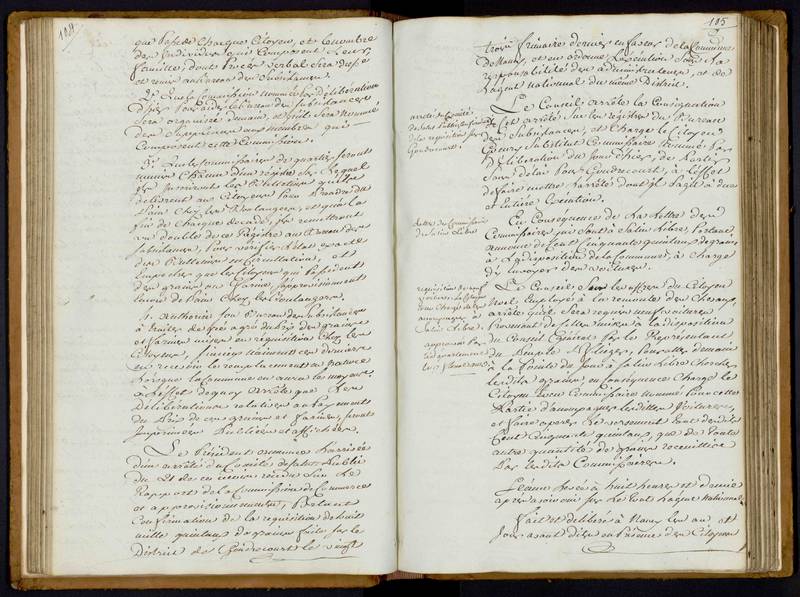 104
que l'âge de chaque Citoyen, et le nombre
des Individus qui composent leur
famille, dont Procès verbal sera dressé
et remis au Bureau des Subsistances.
2° Que la Commission nommée par délibération
d'hier pour aider le Bureau des subsistances
sera organisée demain, et qu'il sera nommé
des Suppléans aux membres qui
composent cette Commission.
3° Que les Commissaires de quartier seront
munis chacun d'un registre sur lequel
ils inscriront les Bulletins qu'ils
délivrent aux Citoyens pour prendre du
Pain chez les Boulangers, et qu'à la
fin de chaque décade, ils remettront
un double de ce Registre au Bureau des
subsistances, pour vérifier l'état exact
des Bulletins en circulation, et
empêcher que les Citoyens qui possèdent
des grains ou farines, s'approvisionnent
encore de Pain chez les Boulangers.
4° Authorise son Bureau des Subsistances
à traiter de gré à gré du prix des grains
et farines mises en réquisition chez les
Citoyens, si mieux n'aiment ces derniers
en recevoir le remplacement en nature
lorsque la Commune en aura les moyens.
à l'effet de quoi arrête que les
Délibérations relatives au payement
du prix de ces grains et farines, seront
imprimées Publiées et affichées.
Le Président annonce l'arrivée
d'un arrêté du Comité de salut Public
du 21 de ce mois rendu sur le
Rapport de la Commission de Commerce
et approvisionnemens, Portant
Confirmation de la requisition de huit
mille quintaux de grains faite sur le
District de Gondrecourt le vingt
105
trois frimaire dernier en faveur de la Commune
de Nancy, et en ordonne l'exécution sous la
responsabilité des administrateurs, et de
l'agent national du même District.
arrêté du Comité
de Salut Public confirmatif
de la requisition sur
Gondrecourt.
Le Conseil arrête la Consignation
de cet arrêté sur les registres du Bureau
des Subsistances, et charge le Citoyen
Substitut Commissaire nommé par
Délibération du jour d'hier, de partir
sans délai pour Gondrecourt, à l'effet
de faire mettre l'arrêté dont il s'agit à due
et entière Exécution.
Lettre des Commissaires
de Salins Libre
En Conséquence de la Lettre des
Commissaires qui sont à Salins Libre, Portant
annonce de Cent Cinquante quintaux de grains
à la disposition de la Commune, à charge
d'y envoyer des voitures.
requisition de neuf
voitures, le Citoyen
Charge de les
accompagner à
Salins Libre.
Le Conseil, sur les offres du Citoyen
Noël Employé à la remonte des Chevaux,
arrête qu'il sera requis neuf voitures
Provenant de celles mises à la disposition
approuvé par
le département
le 1er Pluviose
du Conseil Général par le Représentant
du Peuple Pfliéger, pour aller demain
à la Pointe du jour à Salins Libre chercher
lesdits grains, en conséquence charge le
Citoyen Commissaire nommé pour cette
Partie d'accompagner lesdittes Voitures,
et faire opérer le versement tant desdits
Cent Cinquante quintaux, que de toute
autre quantité de grains recueillies
Par lesdits Commissaires.
Séance levée à huit heures et demie
après avoir ouï sur le tout l'agent National.
Fait et délibéré à Nancy les an et
jour avant dits en présence des Citoyens